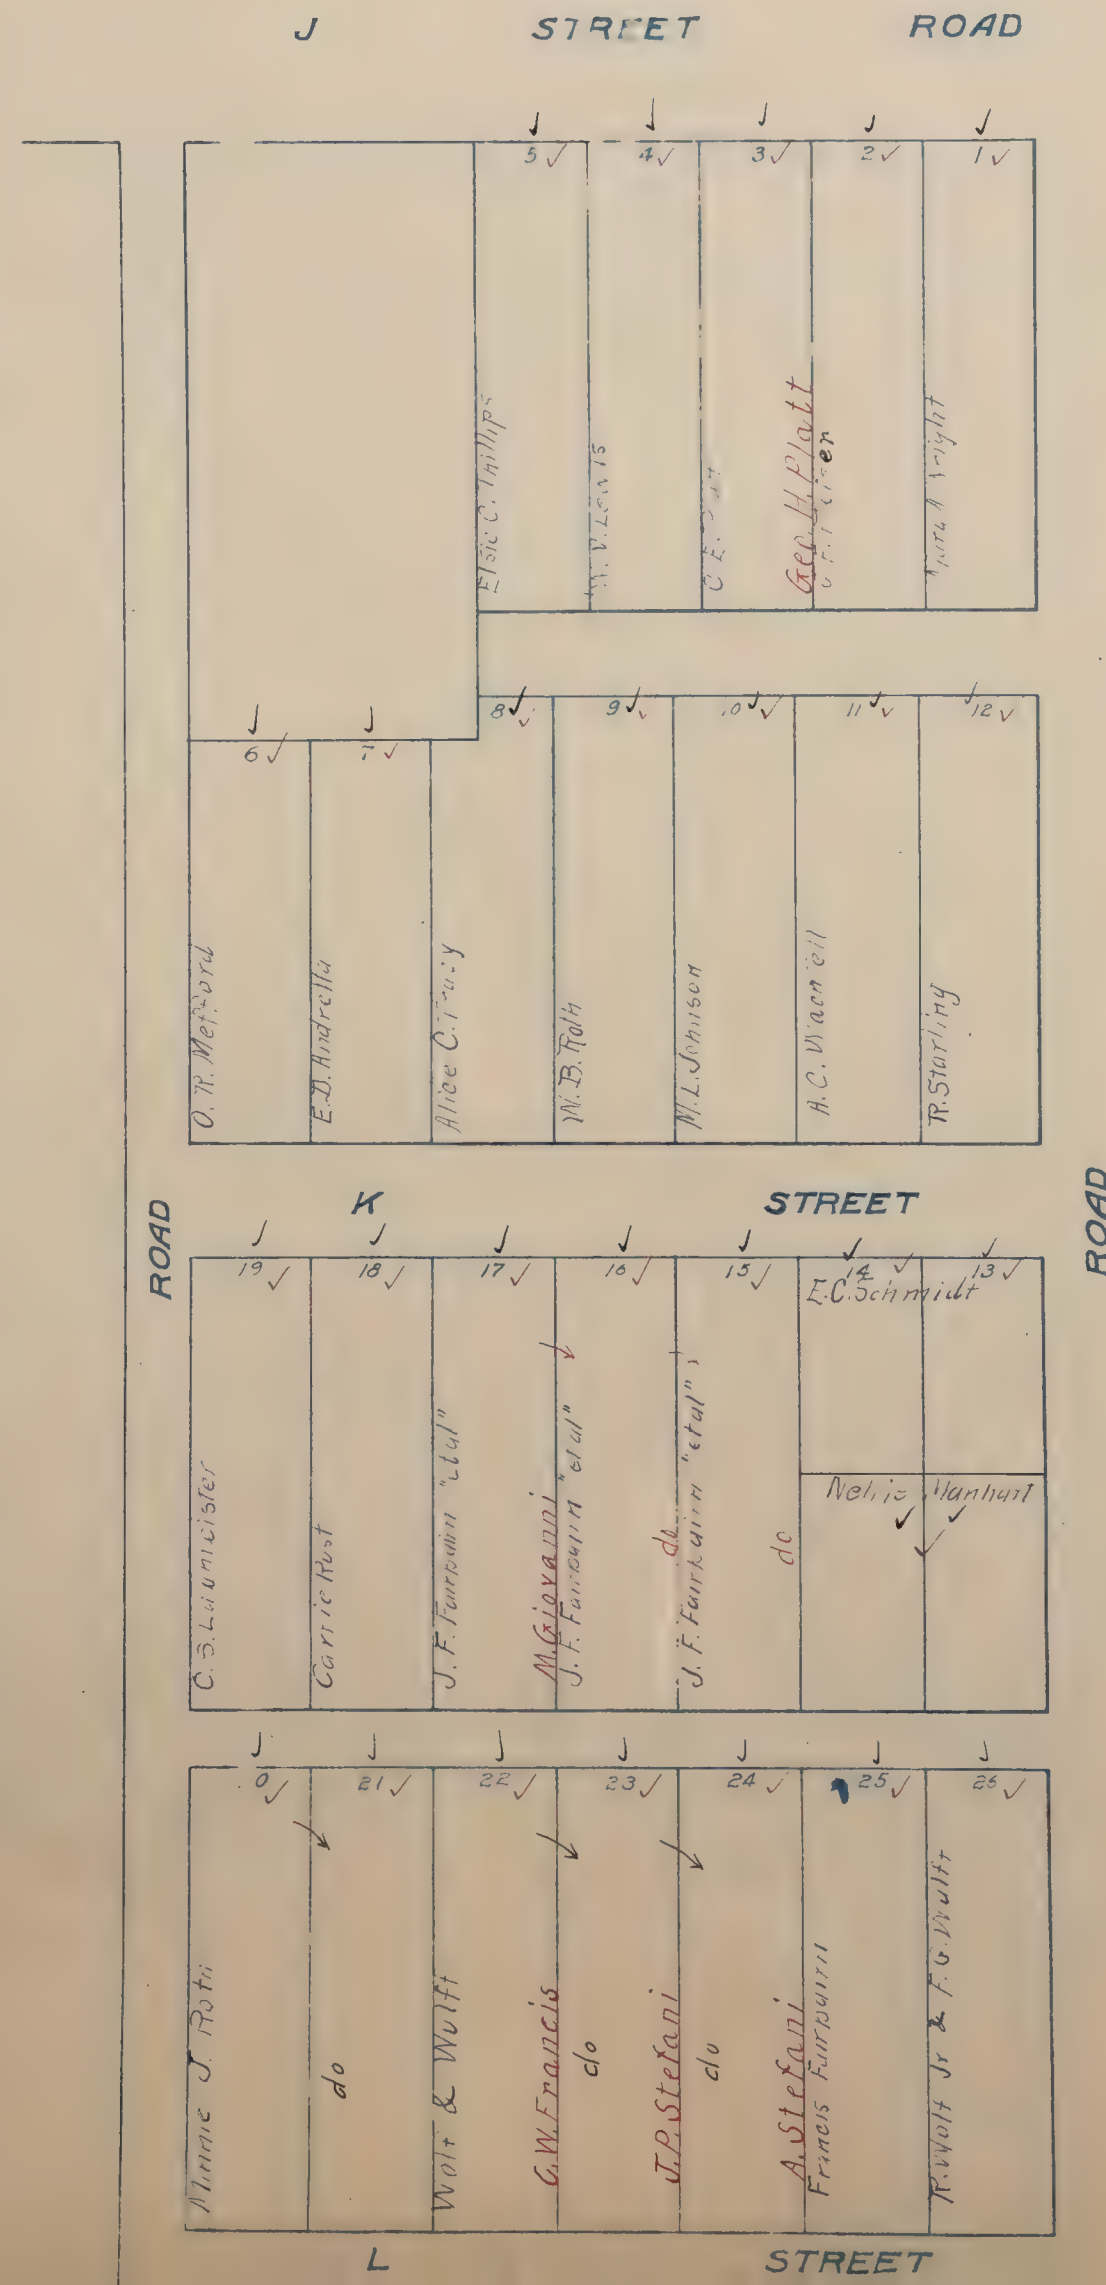 J STREET ROAD
5 4 3 2 1
Elsie C. Phillips
W. V. Lewis
C. E.
Geo. H. Platt
Wright
6 7 8 9 10 11 12
O. R. Mefford
E. D. Andrella
Alice C. Tracy
W. B. Roth
M. L. Johnson
A. C.
R. Starling
ROAD
K STREET
ROAD
19 18 17 16 15 14 13
C. S. Laumeister
Carrie Rust
J. F. Fairbairn "etal"
M. Giovanni
J. F. Fairbairn "etal"
do
J. F. Fairbairn "etal"
do
E. C. Schmidt
Nellie Manhart
0 21 22 23 24 25 26
Minnie J. Roth
do
Wolf & Wulff
C. W. Francis
do
J. P. Stefani
do
A. Stefani
Francis Fairbairn
R. Wolf Jr & F. G. Wulff
L STREET